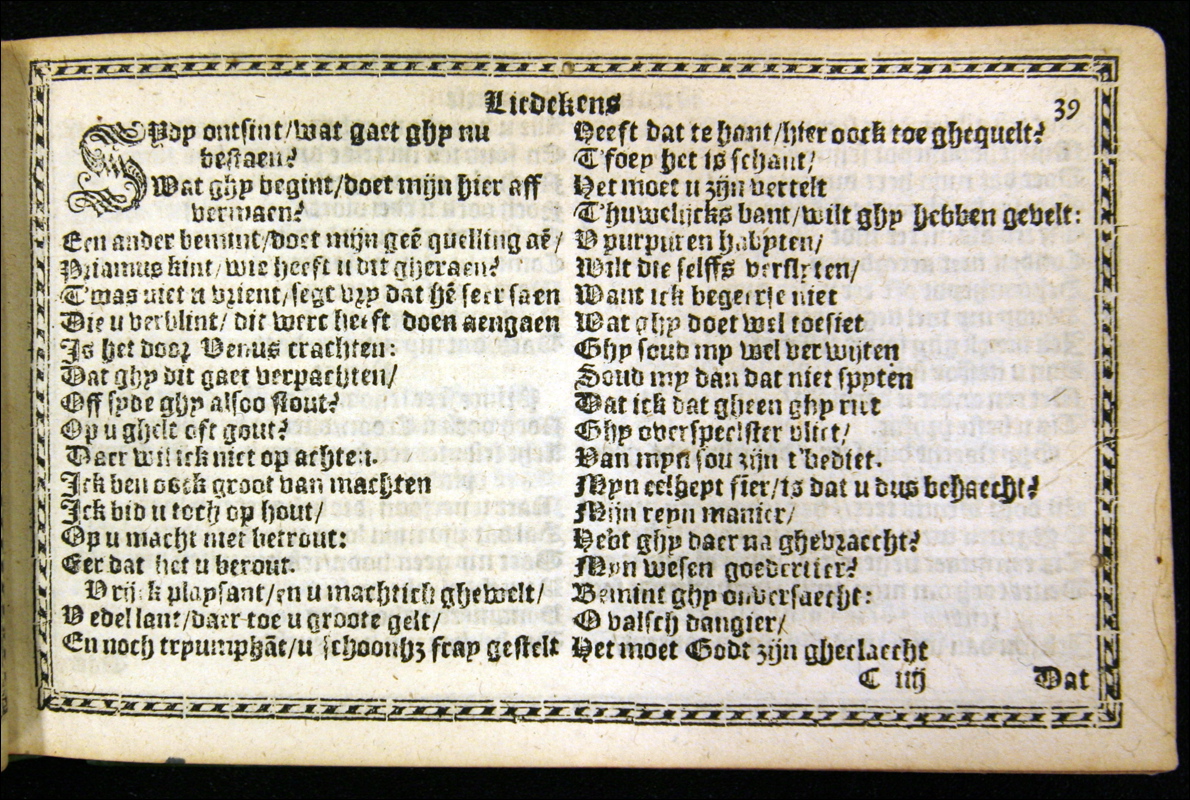 Liedekens
39
GHy ontsint/wat gaet ghy nu
bestaen?
Wat ghy begint/doet mijn hier aff
vermaen?
Een ander bemint/doet mijn geẽ quelling aẽ/
Priamus kint/wie heeft u dit gheraen?
T'was niet u vrient/segt vry dat hẽ seer saen
Die u verblint/ dit werc heeft doen aengaen
Is het door Venus trachten:
Dat ghy dit gaet verpachten/
Off syde ghy alsoo stout?
Op u ghelt oft gout?
Daer wil ick niet op achten.
Ick ben oock groot van machten
Ick bid u toch op hout/
Op u macht niet betrout:
Eer dat het u berout.
Vrijck playsant/en u machtich ghewelt/
V edel lant/daer toe u groote gelt/
En noch trpumphãt/u schoonhz fray gestelt
Heeft dat te hant/hier oock toe ghequelt?
T'foey het is schant/
Het moet u zijn vertelt
T'huwelijcks bant/wilt ghy hebben gevelt:
V purpuren habyten/
Wilt die selffs verslyten/
Want ick begeerse niet
Wat ghy doet wel toesiet
Ghy soud my wel verwijten
Soud my dan dat niet spyten
Dat ick dat gheen ghy riet
Ghy overspeelster vliet/
Van myn sou zijn t'bediet.
Myn eelheyt fier/is dat u dus behaecht?
Mijn reyn manier/
Hebt ghy daer na ghevraecht?
Myn wesen goedertier?
Bemint ghy onversaecht:
O valsch dangier/
Het moet Godt zijn gheclaecht
C iiij
Dat